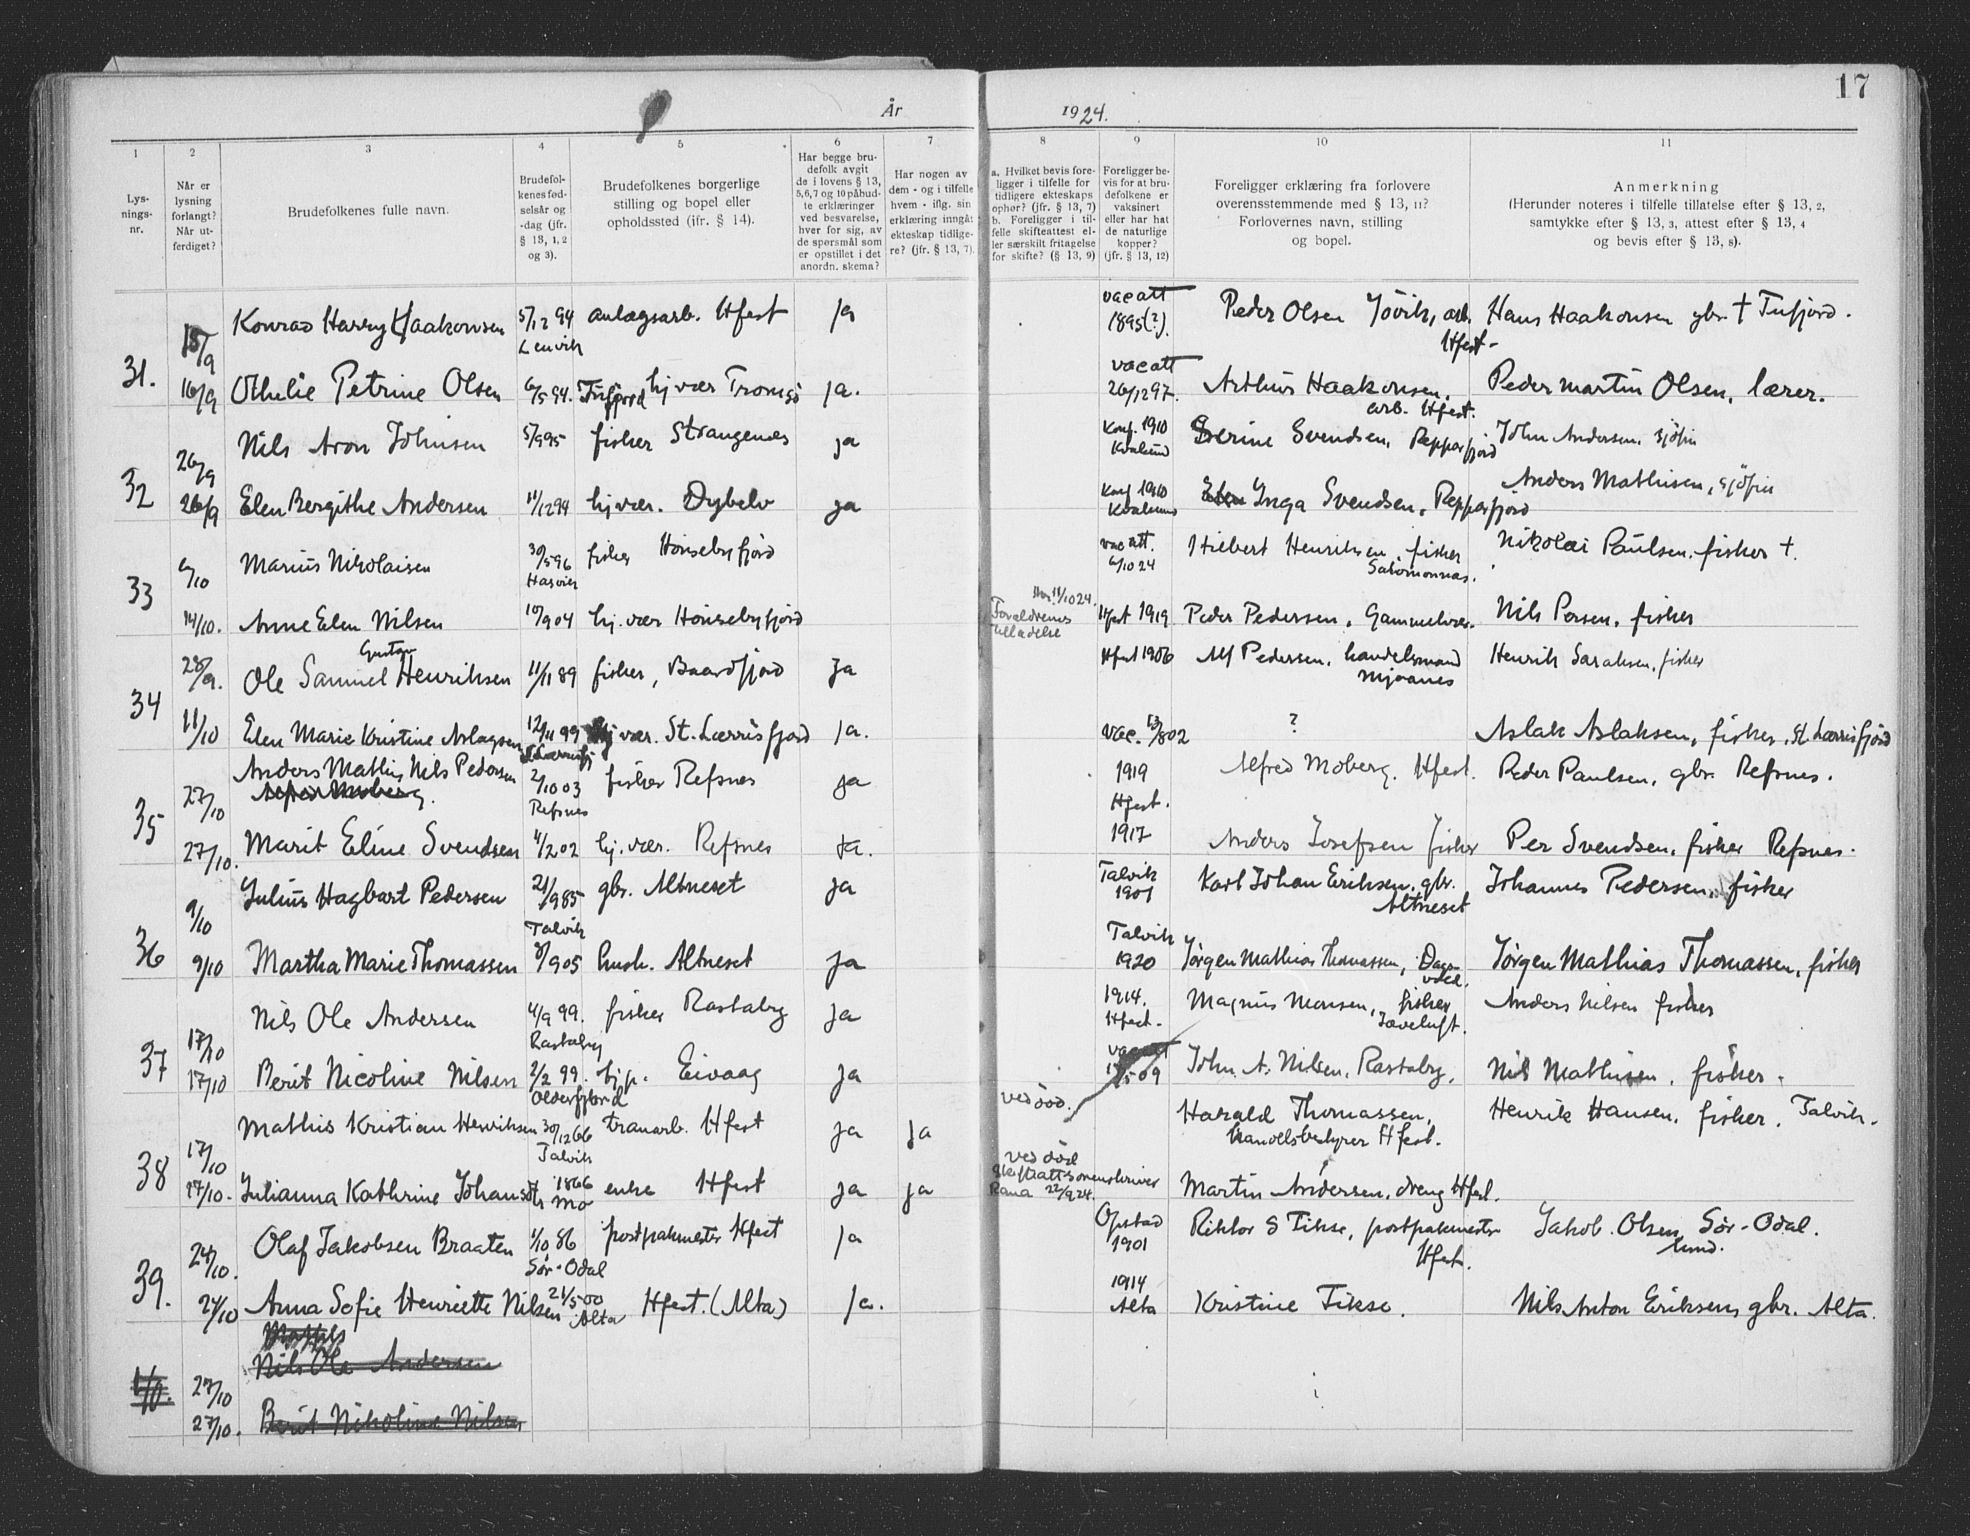 17
År 1924.
1 2 3 4 5 6 7 8 9 10 11
Lys-
nings-
nr.
Når er
lysning
forlangt?
Når ut-
ferdiget?
Brudefolkenes fulle navn.
Brudefol-
kenes fød-
selsår og
-dag (jfr.
§ 13, 1, 2
og 3).
Brudefolkenes borgerlige
stilling og bopel eller
opholdssted (ifr. § 14).
Har begge bru-
defolk avgit
de i lovens § 13,
5,6,7 og 10 påbud-
te erklæringer
ved besvarelse,
hver for sig, av
de spørsmål som
er opstillet i det
anordn. skema?
Har nogen av
dem - og i tilfelle
hvem - iflg. sin
erklæring inngåt
ekteskap tidlige-
re? (jfr. § 13, 7).
a. Hvilket bevis fore-
ligger i tilfelle for
tidligere ekteskaps
ophør? (jfr. § 13, 7)
b. Foreligger i til-
felle skifteattest el-
ler særskilt fritagelse
for skifte? (§ 13, 9)
Foreligger be-
vis for at bru-
defolkene er
vaksinert
eller har hat
de naturlige
kopper?
(jfr. § 13, 12)
Foreligger erklæring fra forlovere
overensstemmende med § 13, 11?
Forlovernes navn, stilling
og bopel.
Anmerkning
(Herunder noteres i tilfelle tillatelse efter § 13, 2,
samtykke efter § 13, 3, attest efter § 13, 4
og bevis efter § 13, 8).
31. 15/9 Konrad Harry Haakonsen 5/12 94 anlægsarb. Hfest ja vac att Peder Olsen Jövik, arb. Hans Haakonsen gbr. † Tufjord.
Lenvik 1895(?). Hfest-
16/9 Othelie Petrine Olsen 6/5 94. Tufjord hj vær Tromsö ja. vac att 26/12 97. Arthur Haakonsen, Peder Martin Olsen, lærer.
arb. Hfest.
32 26/9 Nils Aron Johnsen 5/9 95 fisker Strangenes ja Konf. 1910 Serine Svendsen, Repparfjord John Andersen, sjöfin
Kvalsund
26/9 Elen Bergithe Andersen 11/12 94 hj vær. Dybelv ja Konf 1910 Elen Inga Svendsen, Repparfjord Anders Mathisen, sjöfin
Kvalsund
33 6/10 Marius Nikolaisen 30/5 96 fisker Hönsebyfjord vac att. Hilbert Henriksen, fisker Nikolai Paulsen, fisker †.
Hasvik 6/10 24 Salomonnæs.
14/10. Anne Elen Nilsen 10/9 04 hj. vær Hönsebyfjord 11/10 24. Foreldrenes tilladelse Hfest 1919 Peder Pedersen, Gammelvær. Nils Persen, fisker
34 28/9. Ole Samuel Gustav Henriksen 11/11 89 fisker, Baardfjord Ja Hfest 1906 Alf Pedersen, handelsmand Henrik Sarahsen, fisker
Mjaanes
11/10 Elen Marie Kristine Aslagsen 12/11 99 hj vær. St. Lærrisfjord ja. Vac. 13/8 02 ? Aslak Aslaksen, fisker, St Lærrisfjord
35 27/10 Anders Mathis Nils Pedersen 2/10 03 fisker Refsnes ja 1919 Alfred Moberg. Hfest. Peder Paulsen, gbr. Refsnes.
Alfred Moberg. Refsnes Hfest.
27/10. Marit Eline Svendsen 4/2 02 hj. vær. Refsnes Ja. 1917 Anders Josefsen fisker Per Svendsen, fisker Refsnes.
36 9/10 Julius Hagbart Pedersen 21/9 85 gbr. Altneset ja Talvik 1901 Karl Johan Eriksen, gbr. Johannes Pedersen, fisker
Talvik Altneset
9/10 Martha Marie Thomassen 8/9 05 hush. Altneset ja Talvik 1920 Jørgen Mathias Thomassen, Jørgen Mathias Thomassen, fisker
37 17/10 Nils Ole Andersen 4/9 99. fisker Rastaby ja 1914. Magnus Monsen, fisker Anders Nilsen fisker
Rastaby Hfest.
17/10 Berit Nicoline Nilsen 2/2 99. hjp. Eivaag ja vac att John A. Nilsen, Rastaby. Nils Mathisen, fisker.
Olderfjord
38 17/10 Mathis Kristian Henriksen 30/12 66 tranarb. Hfest ja ja ved död. Harald Thomassen, Henrik Hansen, fisker, Talvik.
Talvik handelsbestyrer Hfest.
17/10. Julianna Kathrine Johansdtr 1866 enke Hfest ja ja ved död Martin Andersen, dreng Hfest.
Mo Skifteatt sorenskriver Rana 22/9 24.
39. 24/10. Olaf Jakobsen Braaten 1/10 86 postpakmester Hfest ja Opstad 1901 Riktor S Fikse, postpakmester Jakob Olsen Lund. Sör-Odal.
Sör-Odal Hfest.
24/10 Anna Sofie Henriette Nilsen 21/5 00 Hfest. (Alta) Ja. 1914 Alta Kristine Fikse. Nils Anton Eriksen, gbr. Alta.
Alta
40. 27/10 Mathis
Nils Ole Andersen
27/10. Berit Nikoline Nilsen